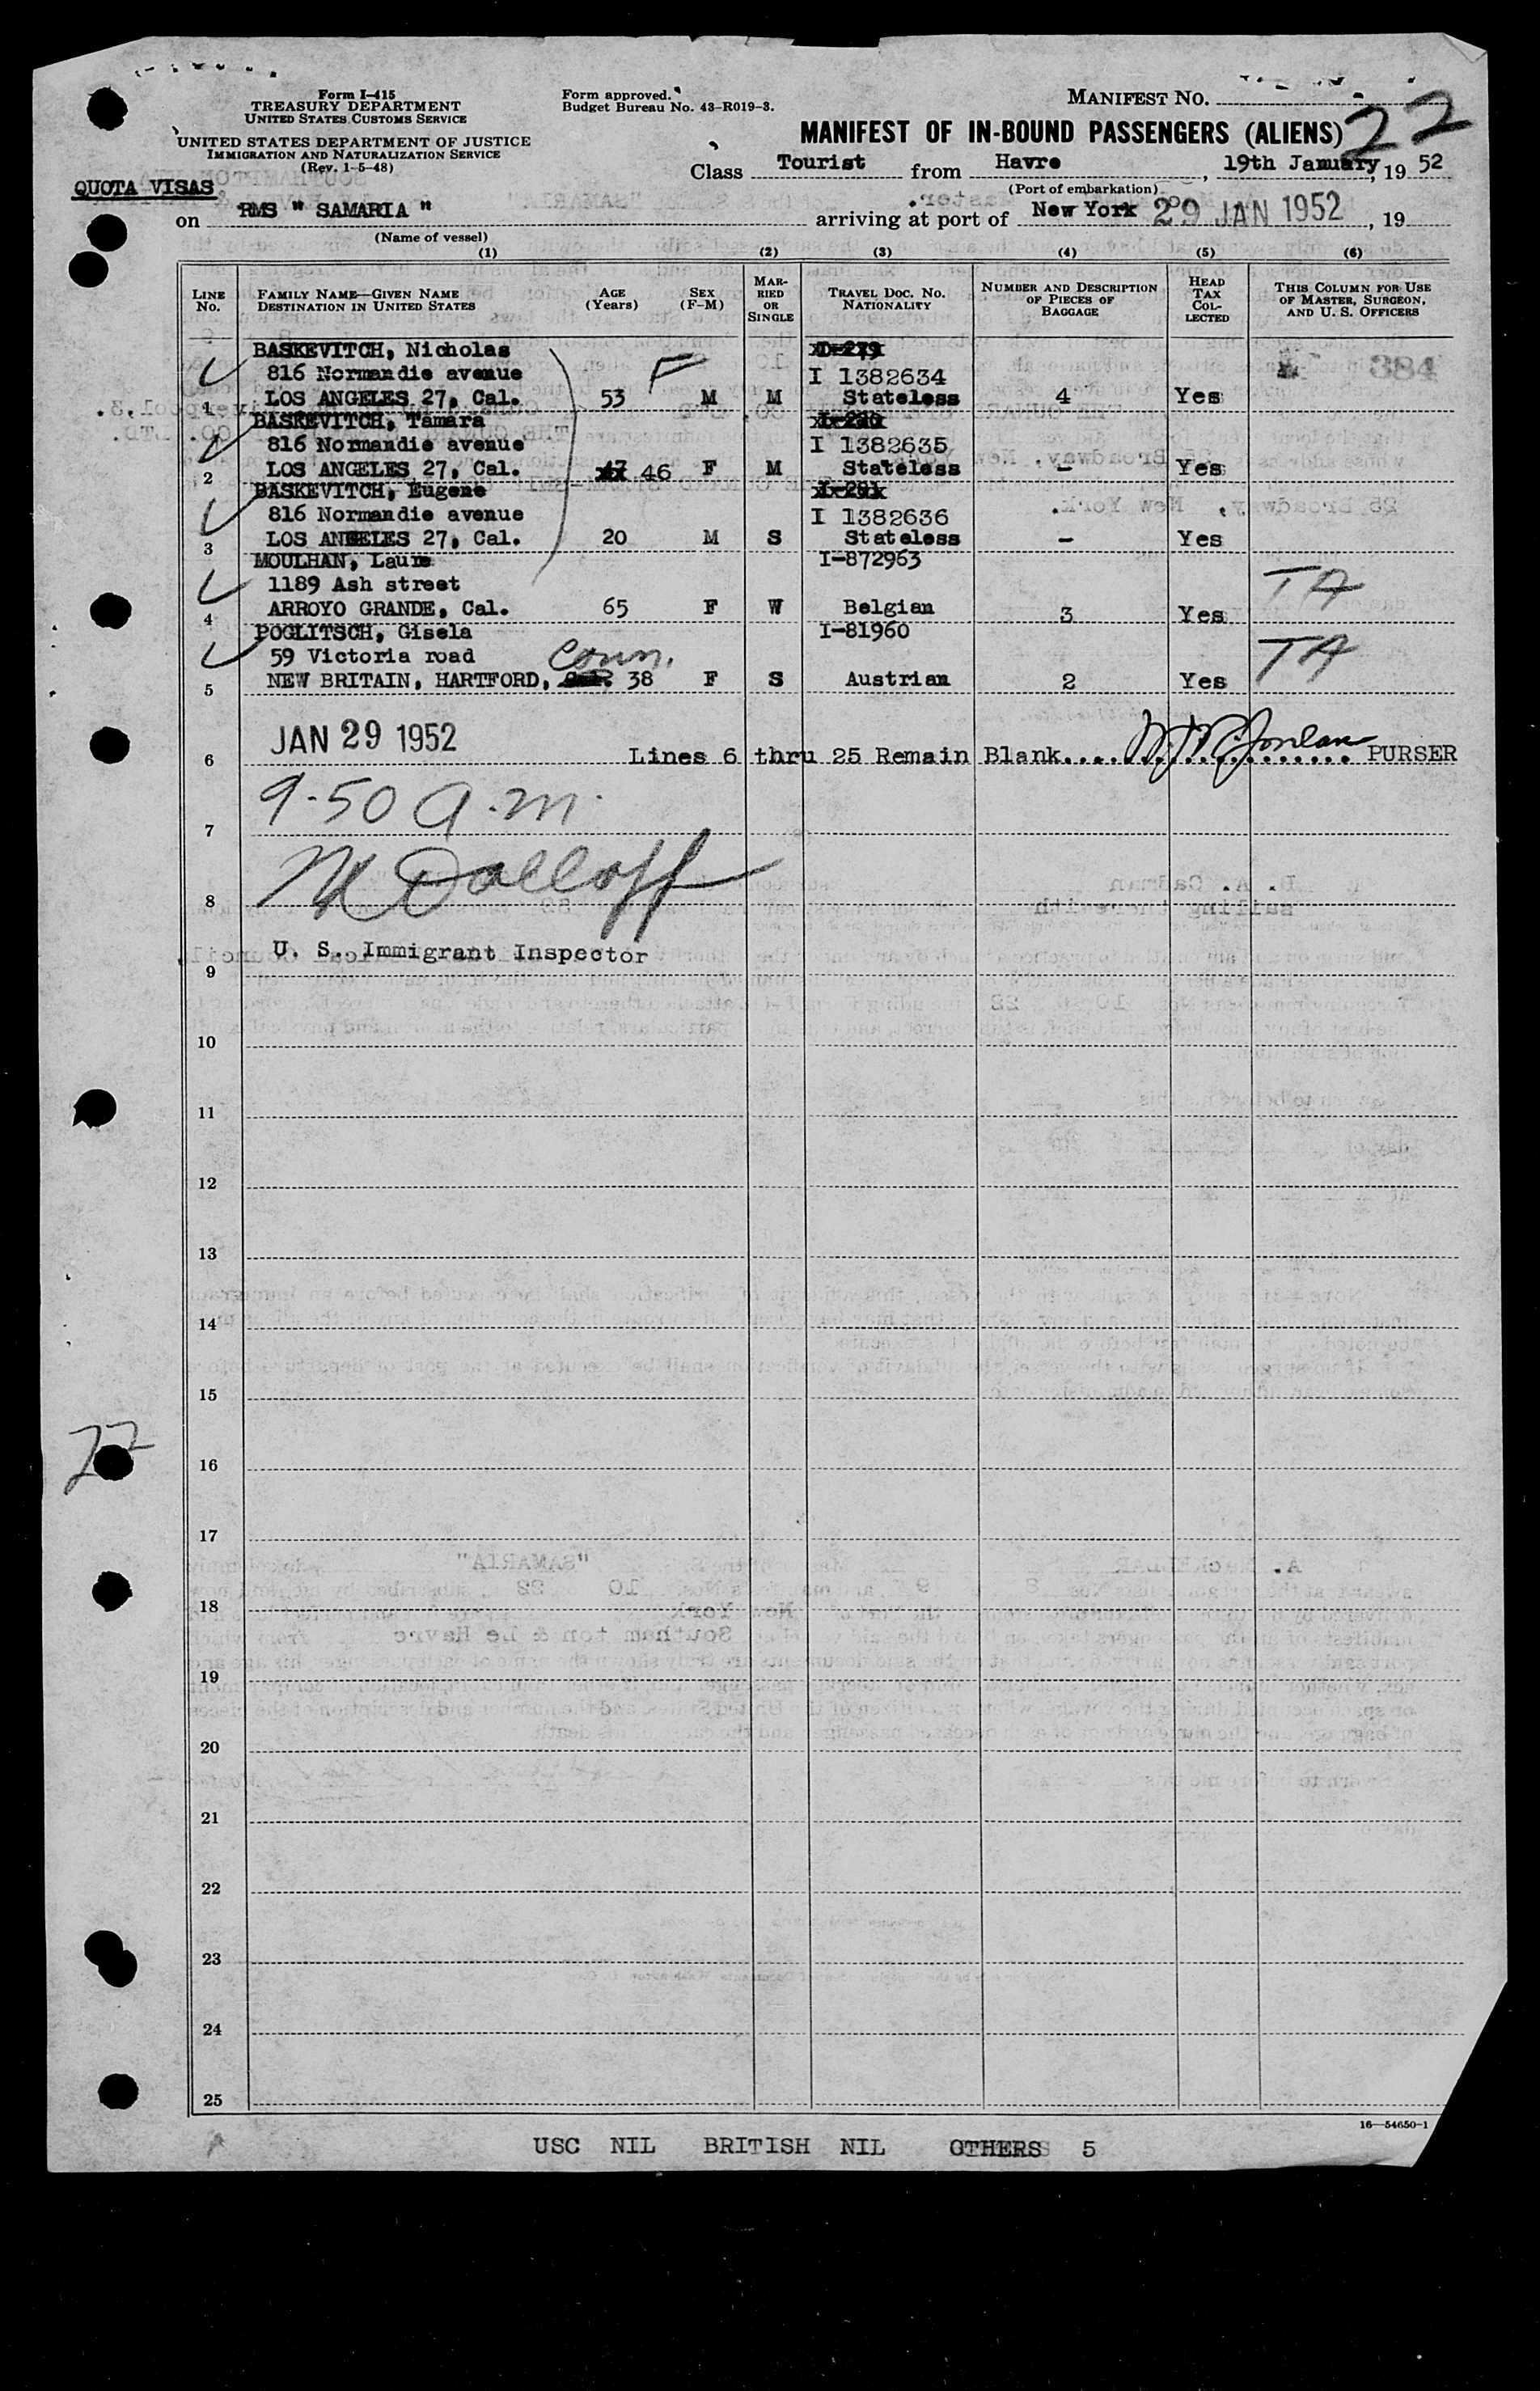 Form I-415
TREASURY DEPARTMENT
UNITED STATES CUSTOMS SERVICE
UNITED STATES DEPARTMENT OF JUSTICE
IMMIGRATION AND NATURALIZATION SERVICE
(Rev. 1-5-48)
Form approved.
Budget Bureau No. 43-R019-3.
MANIFEST NO.
22
MANIFEST OF IN-BOUND PASSENGERS (ALIENS)
Class Tourist from Havre, 19th January, 19 52
(Port of embarkation)
QUOTA VISAS
on RMS " SAMARIA " arriving at port of New York 29 JAN 1952, 19
(Name of vessel)
(1) (2) (3) (4) (5) (6)
LINE No. FAMILY NAME—GIVEN NAME DESTINATION IN UNITED STATES AGE (Years) SEX (F-M) MARRIED OR SINGLE TRAVEL DOC. NO. NATIONALITY NUMBER AND DESCRIPTION OF PIECES OF BAGGAGE HEAD TAX COLLECTED THIS COLUMN FOR USE OF MASTER, SURGEON, AND U. S. OFFICERS
BASKEVITCH, Nicholas
816 Normandie avenue F I 1382634
1 LOS ANGELES 27, Cal. 53 M M Stateless 4 Yes
BASKEVITCH, Tamara
816 Normandie avenue I 1382635
2 LOS ANGELES 27, Cal. 46 F M Stateless - Yes
BASKEVITCH, Eugene
816 Normandie avenue I 1382636
3 LOS ANGELES 27, Cal. 20 M S Stateless - Yes
MOULHAN, Laure I-872963
1189 Ash street TA
4 ARROYO GRANDE, Cal. 65 F W Belgian 3 Yes
POGLITSCH, Gisela I-81960
59 Victoria road Conn. TA
5 NEW BRITAIN, HARTFORD, 38 F S Austrian 2 Yes
JAN 29 1952
6 Lines 6 thru 25 Remain Blank.................... PURSER
9-50 a.m.
7
8
U. S. Immigrant Inspector
9
10
11
12
13
14
15
22
16
17
18
19
20
21
22
23
24
25
16—54650-1
USC NIL BRITISH NIL OTHERS 5